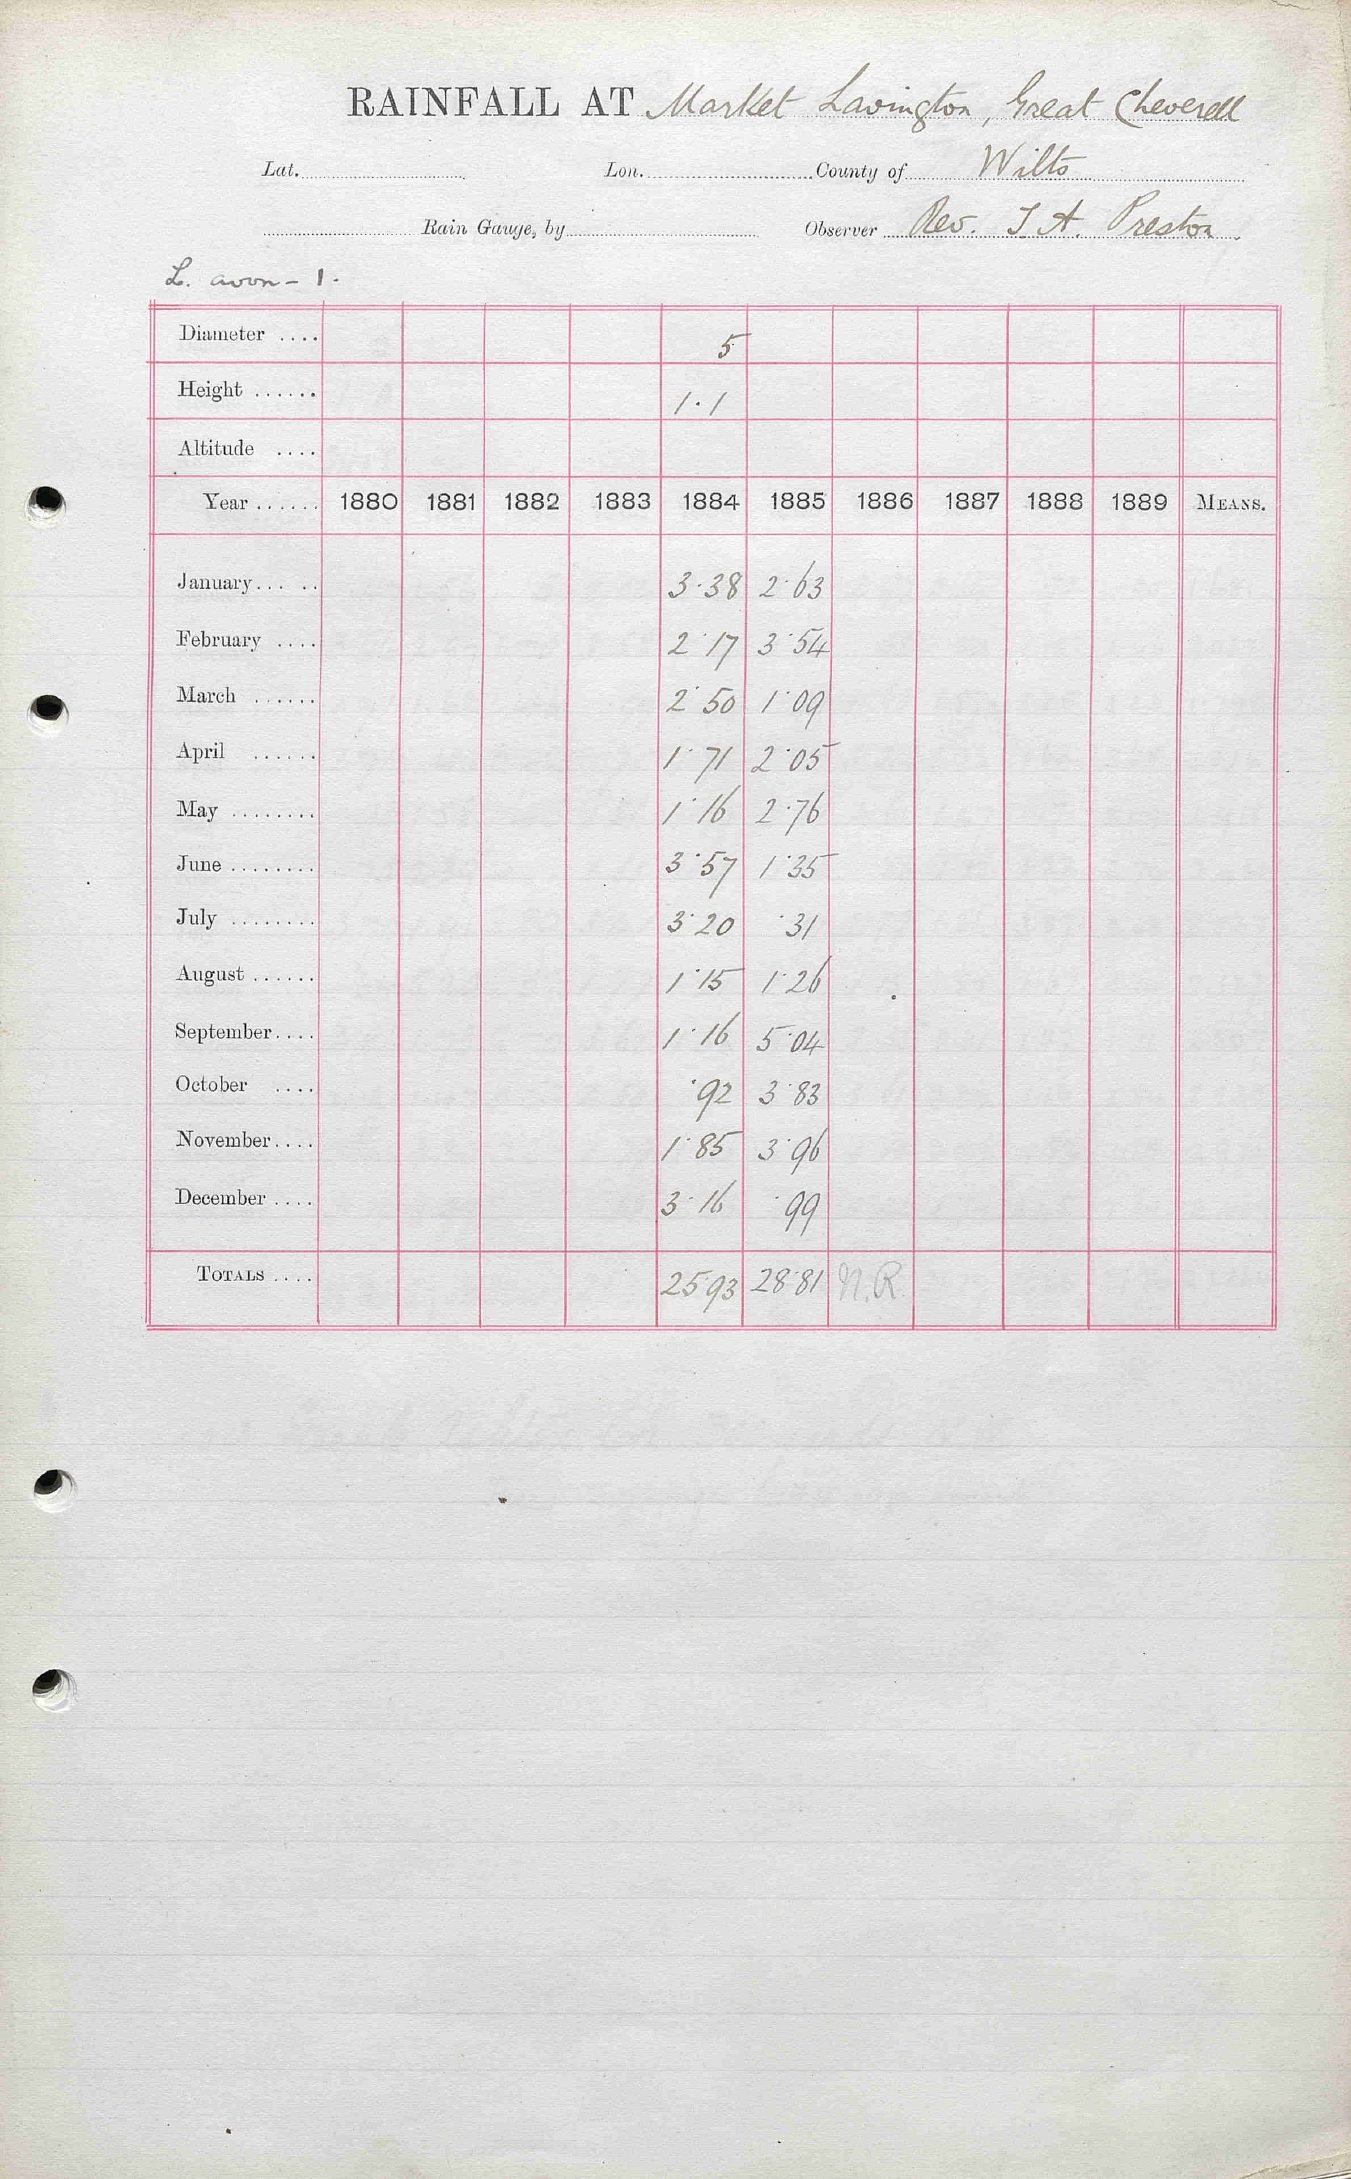 RAINFALL AT Market Lavington, Great Cheverell
Lat. Lon. County of Wilts
Rain Gauge, by Observer Rev. T. A. Preston
L. avon - 1.
Diameter .... 5
Height ...... 1.1
Altitude ....
Year ...... 1880 1881 1882 1883 1884 1885 1886 1887 1888 1889 MEANS.
January... .. 3.38 2.63
February .... 2.17 3.54
March ...... 2.50 1.09
April ...... 1.71 2.05
May ........ 1.16 2.76
June ........ 3.57 1.35
July ........ 3.20 .31
August ...... 1.15 1.26
September.... 1.16 5.04
October .... .92 3.83
November.... 1.85 3.96
December .... 3.16 .99
TOTALS .... 25.93 28.81 N.R.